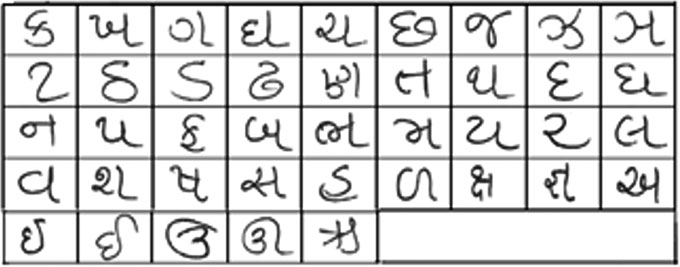 ક ખ ગ ઘ ચ છ જ ઝ ઞ
ટ ઠ ડ ઢ ણ ત થ દ ધ
ન પ ફ બ ભ મ ય ર લ
વ શ ષ સ હ ળ ક્ષ જ્ઞ અ
ઇ ઈ ઉ ઊ ઋ